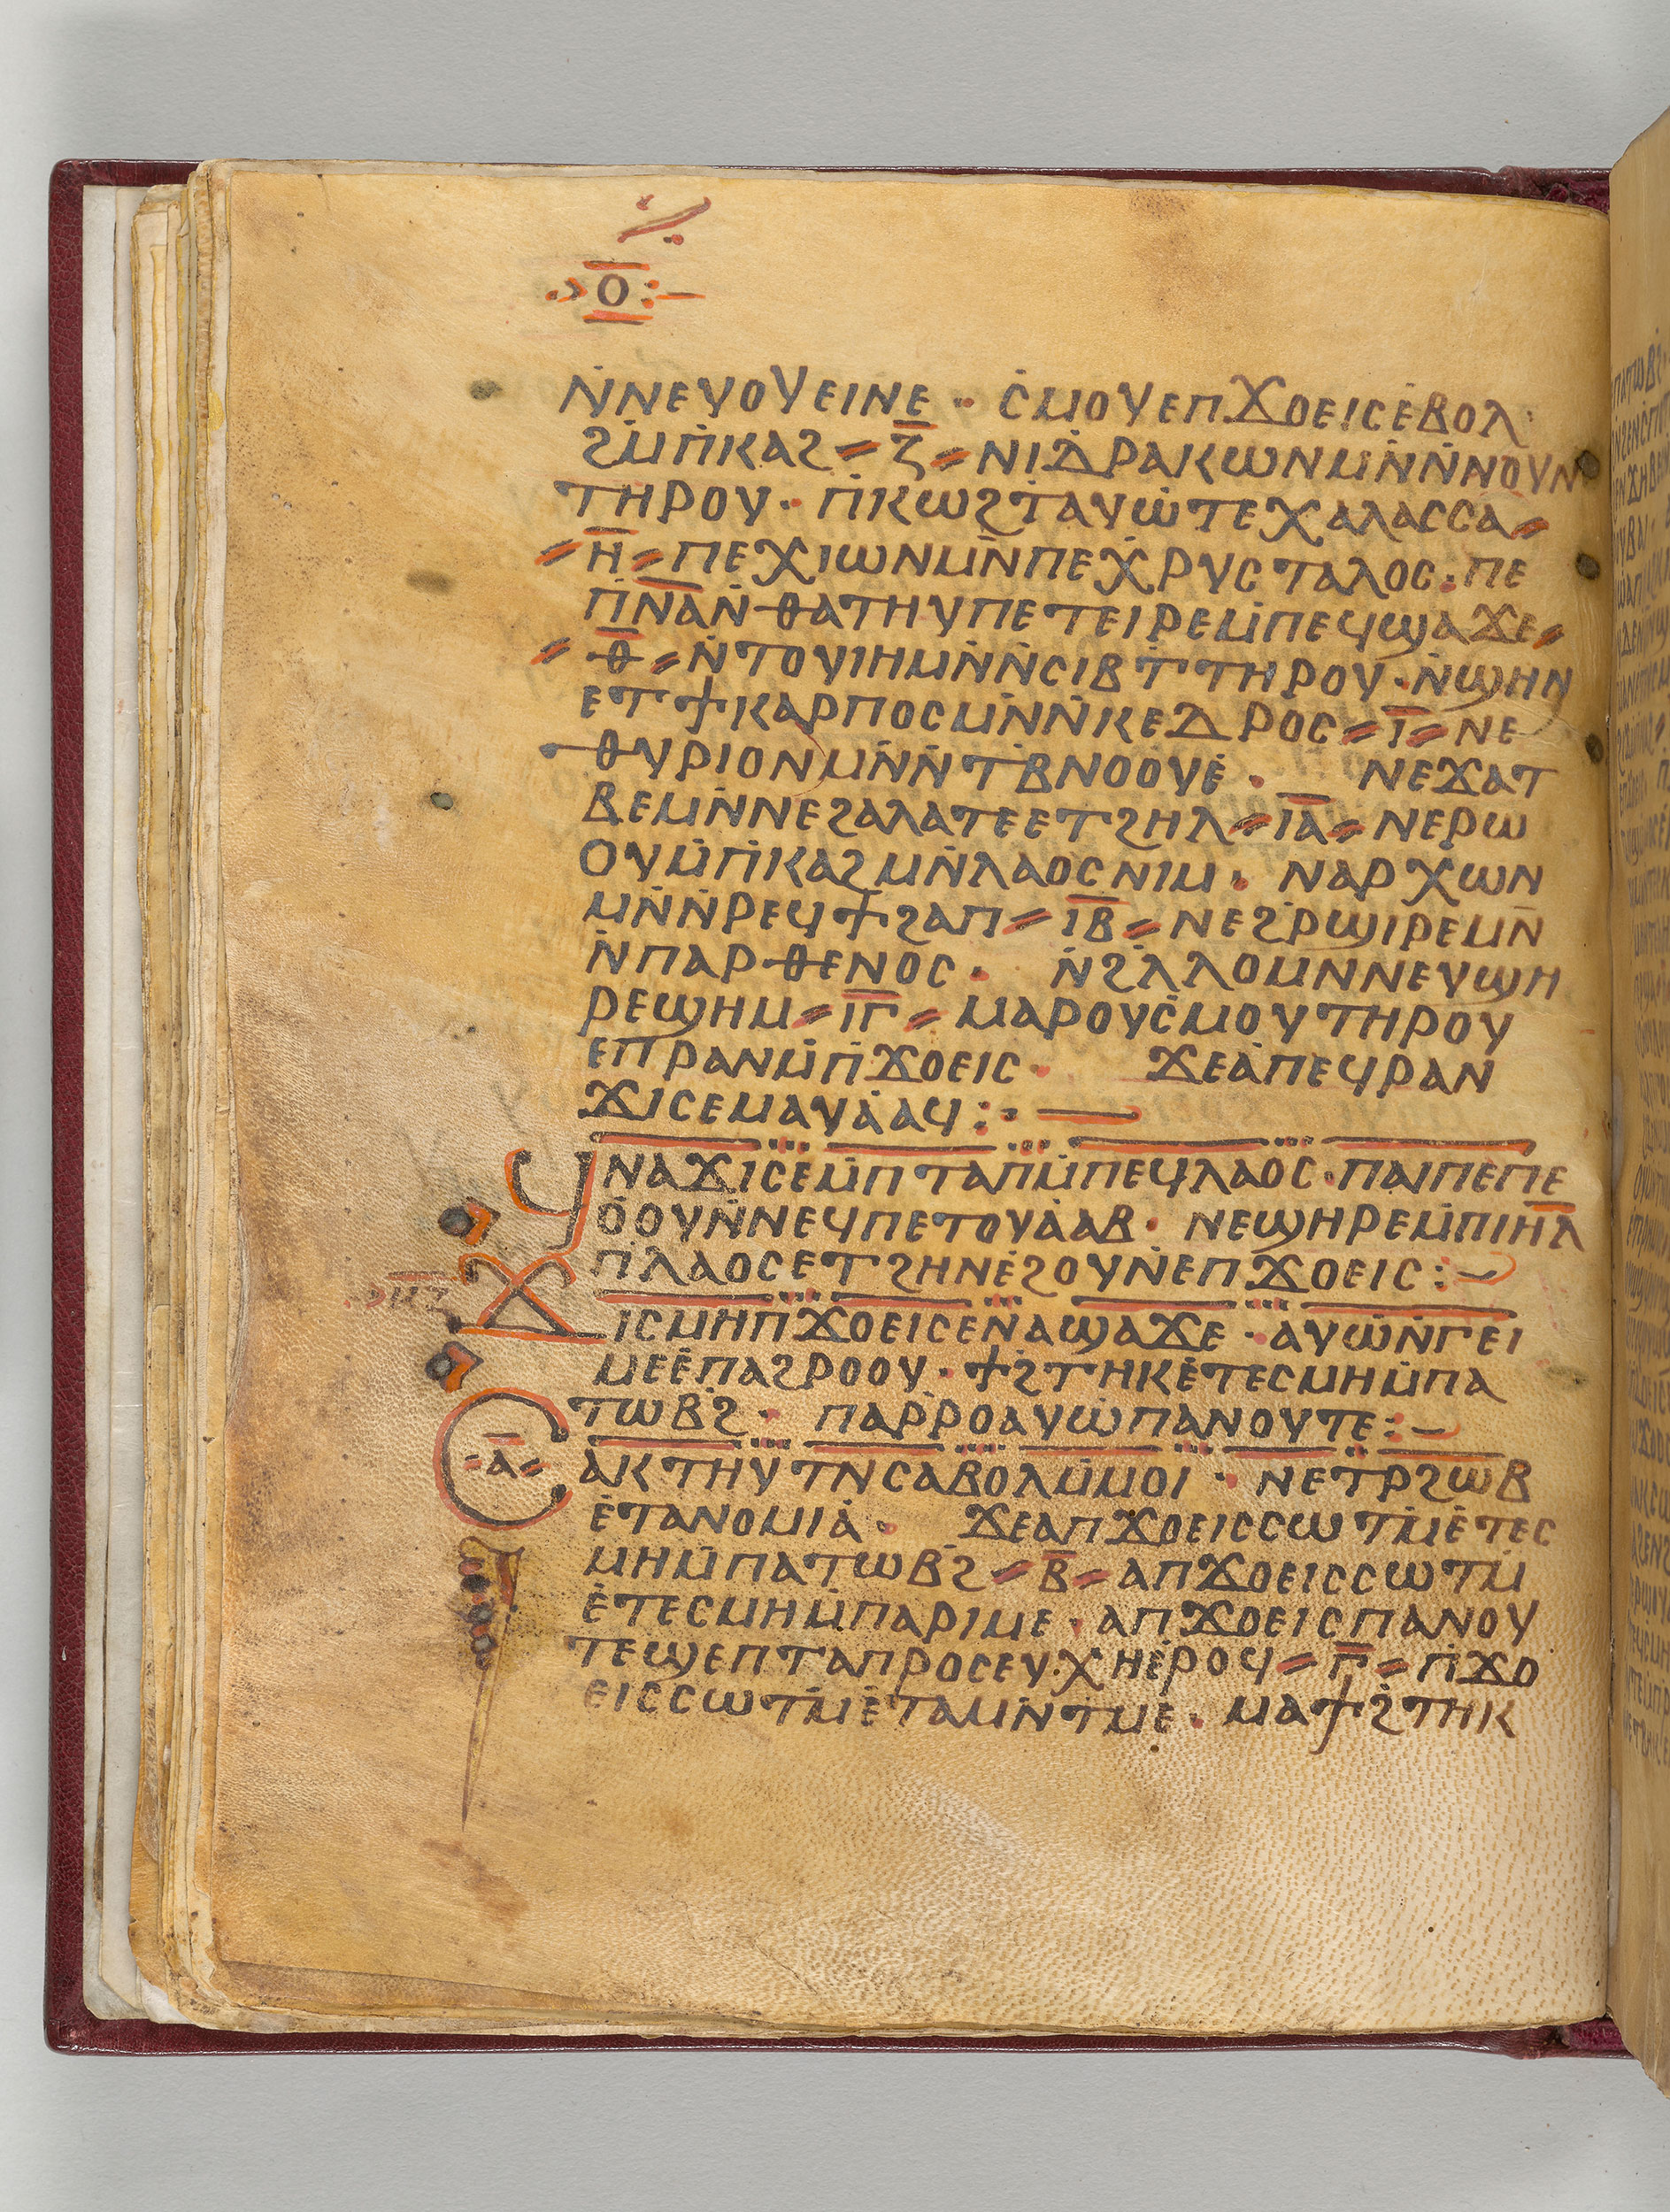 ⲟ̅
ⲛ̇ⲛⲉⲩⲟⲩⲉⲓⲛⲉ · ⲥ̇ⲙⲟⲩⲉⲡϫⲟⲉⲓⲥⲉ̇ⲃⲟⲗ
ϩⲙ̇ⲡ̇ⲕⲁϩ ⸗ ⲍ̅ ⸗ ⲛⲓⲇⲣⲁⲕⲱⲛⲙⲛ̇ⲛ̇ⲛⲟⲩⲛ
ⲧⲏⲣⲟⲩ · ⲡ̇ⲕⲱϩⲧ̇ⲁⲩⲱ̇ⲧⲉⲭⲁⲗⲁⲥⲥⲁ ⸗
⸗ ⲏ̅ ⸗ ⲡⲉⲭⲓⲱⲛⲙⲛ̇ⲡⲉⲭ̇ⲣⲩⲥⲧⲁⲗⲟⲥ · ⲡⲉ
ⲡ̅ⲛ̅ⲁ̅ⲛ̇ϩⲁⲧⲏⲩⲡⲉⲧⲉⲓⲣⲉⲙ̇ⲡⲉϥϣⲁϫⲉ ⸗
⸗ ⲑ̅ ⸗ ⲛ̇ⲧⲟⲩⲓⲏⲙⲛ̇ⲛ̇ⲥⲓⲃⲧ̇ⲧⲏⲣⲟⲩ · ⲛ̇ϣⲏⲛ
ⲉⲧϯⲕⲁⲣⲡⲟⲥⲙⲛ̇ⲛ̇ⲕⲉⲇⲣⲟⲥ ⸗ ⲓ̅ ⸗ ⲛⲉ
ⲑⲩⲣⲓⲟⲛⲙⲛ̇ⲛ̇ⲧⲃ̇ⲛⲟⲟⲩⲉ̇ · ⲛⲉϫⲁⲧ
ⲃⲉⲙⲛ̇ⲛⲉϩⲁⲗⲁⲧⲉⲉⲧϩⲏⲗ ⸗ ⲓ̅ⲁ̅ ⸗ ⲛⲉⲣⲱ
ⲟⲩⲙ̇ⲡ̇ⲕⲁϩⲙⲛ̇ⲗⲁⲟⲥⲛⲓⲙ · ⲛⲁⲣⲭⲱⲛ
ⲙⲛ̇ⲛ̇ⲣⲉϥϯϩⲁⲡ ⸗ ⲓ̅ⲃ̅ ⸗ ⲛⲉϩⲣ̇ϣⲓⲣⲉⲙⲛ̅
ⲛ̇ⲡⲁⲣⲑⲉⲛⲟⲥ · ⲛ̇ϩⲗ̇ⲗⲟⲙⲛⲛⲉⲩϣⲏ
ⲣⲉϣⲏⲙ ⸗ ⲓ̅ⲅ̅ ⸗ ⲙⲁⲣⲟⲩⲥ̇ⲙⲟⲩⲧⲏⲣⲟⲩ
ⲉⲡⲣⲁⲛⲙ̇ⲡ̇ϫⲟⲉⲓⲥ · ϫⲉⲁ̇ⲡⲉϥⲣⲁⲛ
ϫⲓⲥⲉⲙⲁⲩⲁ̇ⲁϥ : · —
ϥⲛⲁϫⲓⲥⲉⲙ̇ⲡⲧⲁⲡⲙ̇ⲡⲉϥⲗⲁⲟⲥ · ⲡⲁⲓⲡⲉⲡⲉ
ⲟ̇ⲟⲩⲛ̇ⲛⲉϥⲡⲉⲧⲟⲩⲁ̇ⲁⲃ · ⲛⲉϣⲏⲣⲉⲙ̇ⲡⲓⲏ̅ⲗ̅
ⲡ̇ⲗⲁⲟⲥⲉⲧϩⲏⲛⲉ̇ϩⲟⲩⲛ̇ⲉⲡϫⲟⲉⲓⲥ : —
ϫⲓⲥⲙⲏⲡϫⲟⲉⲓⲥⲉⲛ̇ⲁϣⲁϫⲉ · ⲁⲩⲱⲛ̇ⲅⲉⲓ
ⲙⲉⲉ̇ⲡⲁϩⲣⲟⲟⲩ · ϯϩ̇ⲧⲏⲕⲉ̇ⲧⲉⲥⲙⲏⲙ̇ⲡⲁ
ⲧⲱⲃ̇ϩ · ⲡⲁⲣ̇ⲣⲟⲁⲩⲱ̇ⲡⲁⲛⲟⲩⲧⲉ : —
ⲁ̅
ⲥⲁⲕⲧⲏⲩⲧⲛⲥⲁⲃⲟⲗⲙ̇ⲙⲟⲓ · ⲛⲉⲧⲣ̇ϩⲱⲃ
ⲉ̇ⲧⲁⲛⲟⲙⲓⲁ̇ · ϫⲉⲁⲡϫⲟⲉⲓⲥⲥⲱⲧⲙ̇ⲉ̇ⲧⲉⲥ
ⲙⲏⲙ̇ⲡⲁⲧⲱⲃ̇ϩ ⸗ ⲃ̅ ⸗ ⲁⲡϫⲟⲉⲓⲥⲥⲱⲧⲙ̇
ⲉ̇ⲧⲉⲥⲙⲏⲙ̇ⲡⲁⲣⲓⲙⲉ · ⲁⲡϫⲟⲉⲓⲥⲡⲁⲛⲟⲩ
ⲧⲉϣⲉⲡⲧⲁⲡⲣⲟⲥⲉⲩⲭⲏⲉ̇ⲣⲟϥ ⸗ ⲅ̅ ⸗ ⲡ̇ϫⲟ
ⲉⲓⲥⲥⲱⲧⲙ̇ⲉ̇ⲧⲁⲙⲛ̇ⲧⲙⲉ · ⲙⲁϯϩ̇ⲧⲏⲕ